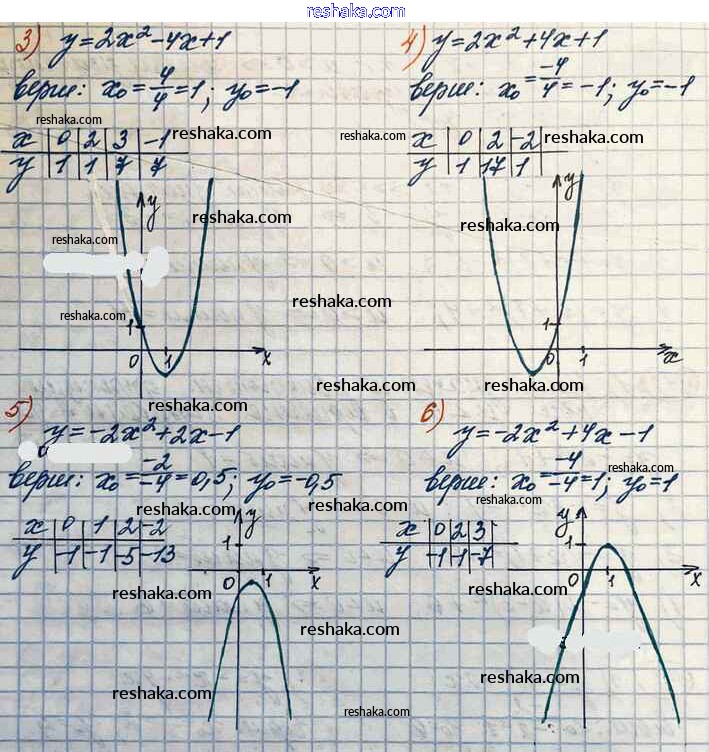 reshaka.com
3) y=2x²-4x+1
верш: x₀=4/4=1; y₀=-1
reshaka.com
reshaka.com
x | 0 | 2 | 3 | -1
y | 1 | 1 | 7 | 7
reshaka.com
y
reshaka.com
reshaka.com
reshaka.com
1
0 1 x
reshaka.com
reshaka.com
4) y=2x²+4x+1
верш: x₀=-4/4=-1; y₀=-1
reshaka.com
x | 0 | 2 | -2
y | 1 | 17 | 1
y
reshaka.com
1
0 1 x
reshaka.com
5) y=-2x²+2x-1
reshaka.com
верш: x₀=-2/-4=0,5; y₀=-0,5
x | 0 | 1 | 2 | -2
y | -1 | -1 | -5 | -13
y
1
0 1 x
reshaka.com
reshaka.com
reshaka.com
reshaka.com
6) y=-2x²+4x-1
reshaka.com
верш: x₀=-4/-4=1; y₀=1
reshaka.com
x | 0 | 2 | 3
y | -1 | -1 | -7
y
1
0 1 x
reshaka.com
reshaka.com
reshaka.com